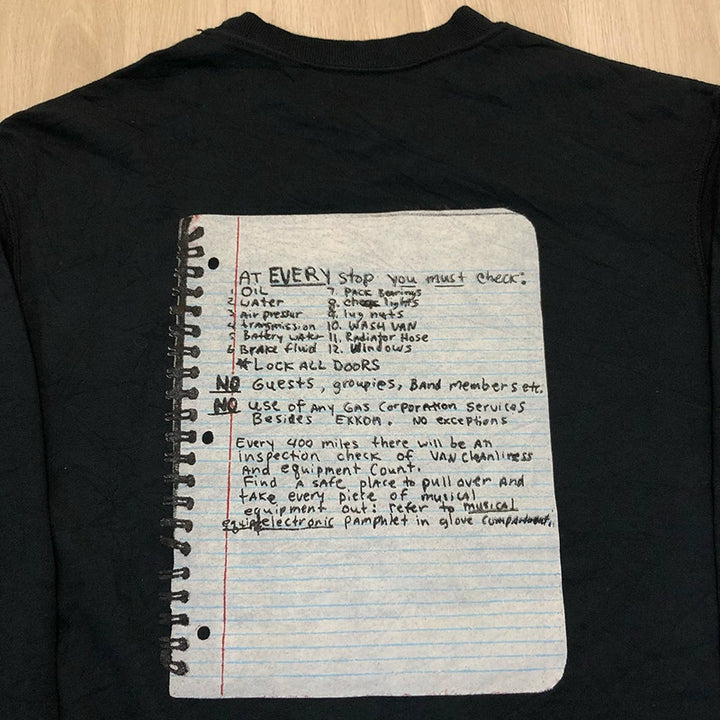 AT EVERY stop you must check:
1 OIL 7. PACK Bearings
2 water 8. check lights
3 air pressur 9. lug nuts
4 transmission 10. WASH VAN
5 Battery water 11. Radiator Hose
6 Brake fluid 12. Windows
*LOCK ALL DOORS
NO Guests, groupies, Band members etc.
NO use of Any GAS Corporation Services
Besides EXXON. NO exceptions
Every 400 miles there will be An
inspection check of VAN Cleanliness
And equipment Count.
Find A safe place to pull over And
take every piece of musical
equipment out: refer to musical
electronic pamphlet in glove compartment.